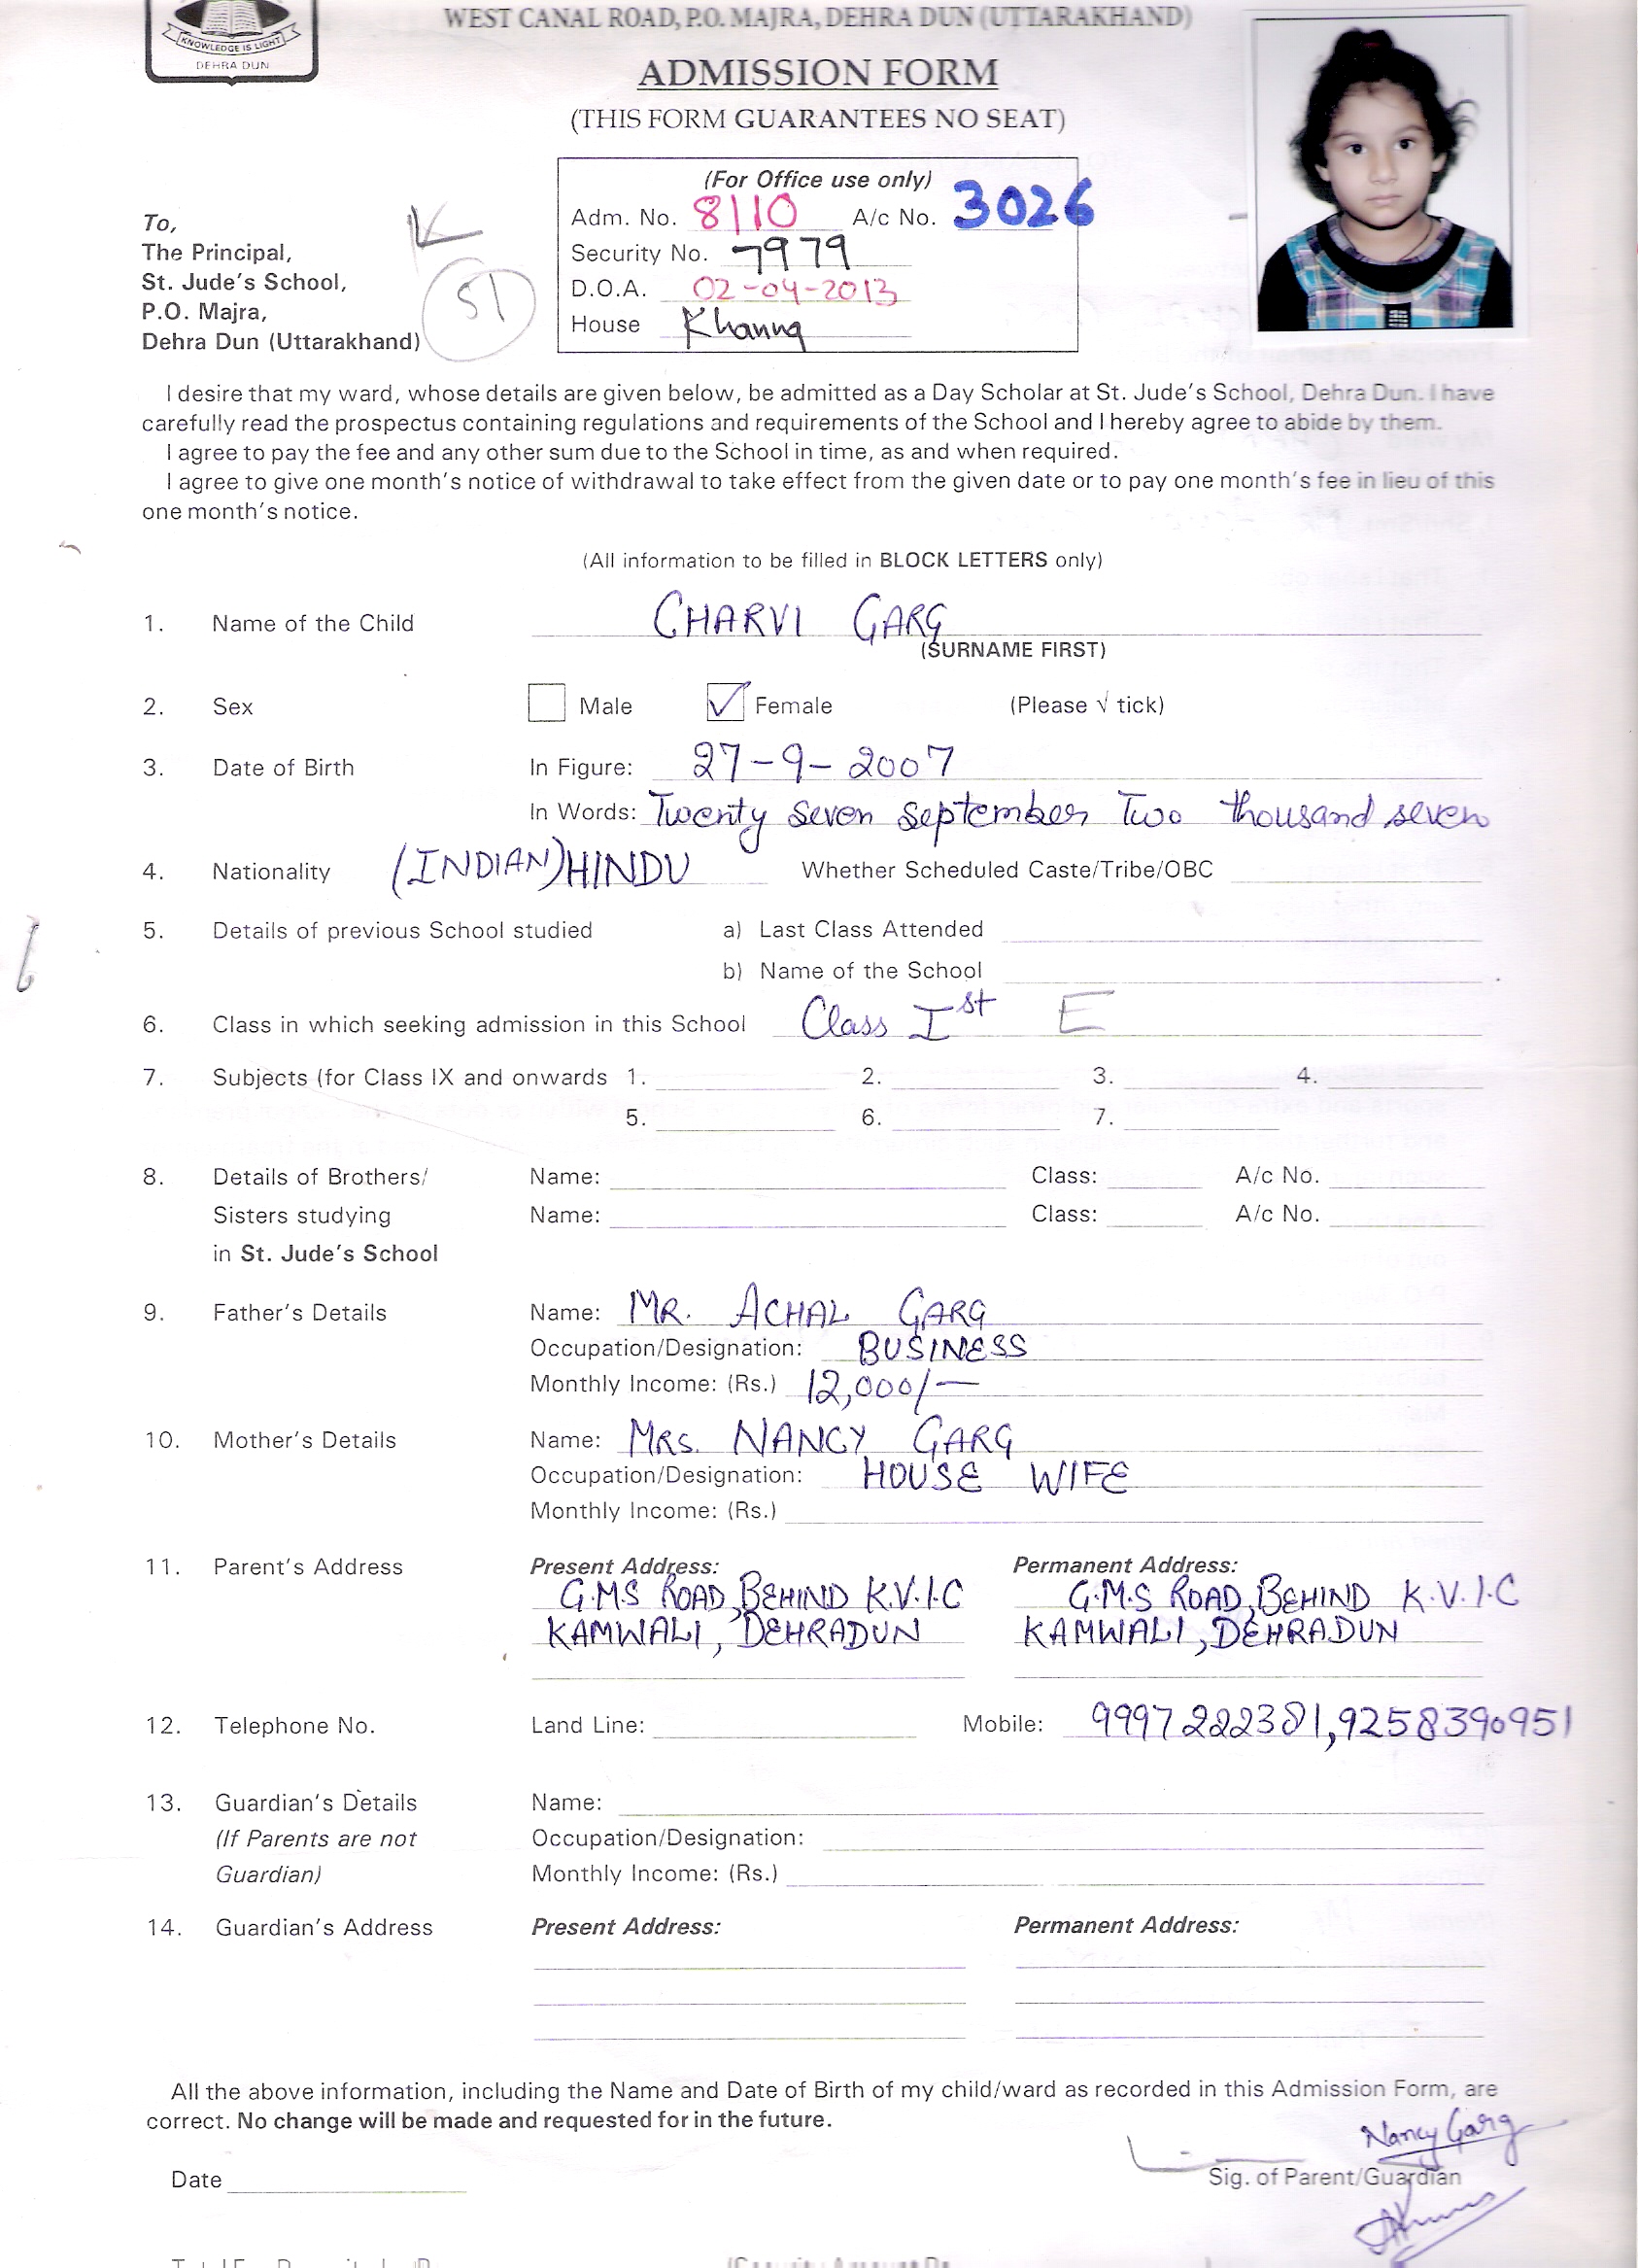 WEST CANAL ROAD, P.O. MAJRA, DEHRA DUN (UTTARAKHAND)
KNOWLEDGE IS LIGHT
DEHRA DUN
ADMISSION FORM
(THIS FORM GUARANTEES NO SEAT)
(For Office use only)
Adm. No. 8110 A/c No. 3026
Security No. 7979
D.O.A. 02-04-2013
House Khanna
To,
The Principal,
St. Jude's School,
P.O. Majra,
Dehra Dun (Uttarakhand)
51
I desire that my ward, whose details are given below, be admitted as a Day Scholar at St. Jude's School, Dehra Dun. I have
carefully read the prospectus containing regulations and requirements of the School and I hereby agree to abide by them.
I agree to pay the fee and any other sum due to the School in time, as and when required.
I agree to give one month's notice of withdrawal to take effect from the given date or to pay one month's fee in lieu of this
one month's notice.
(All information to be filled in BLOCK LETTERS only)
1. Name of the Child CHARVI GARG
(SURNAME FIRST)
2. Sex Male Female (Please √ tick)
3. Date of Birth In Figure: 27-9-2007
In Words: Twenty seven september Two thousand seven
4. Nationality (INDIAN) HINDU Whether Scheduled Caste/Tribe/OBC
5. Details of previous School studied a) Last Class Attended
b) Name of the School
6. Class in which seeking admission in this School Class Ist E
7. Subjects (for Class IX and onwards 1. 2. 3. 4.
5. 6. 7.
8. Details of Brothers/ Name: Class: A/c No.
Sisters studying Name: Class: A/c No.
in St. Jude's School
9. Father's Details Name: MR. ACHAL GARG
Occupation/Designation: BUSINESS
Monthly Income: (Rs.) 12,000/-
10. Mother's Details Name: MRS. NANCY GARG
Occupation/Designation: HOUSE WIFE
Monthly Income: (Rs.)
11. Parent's Address Present Address: Permanent Address:
G.M.S ROAD, BEHIND K.V.I.C G.M.S ROAD, BEHIND K.V.I.C
KAMWALI, DEHRADUN KAMWALI, DEHRADUN
12. Telephone No. Land Line: Mobile: 9997222381, 9258390951
13. Guardian's Details Name:
(If Parents are not Occupation/Designation:
Guardian) Monthly Income: (Rs.)
14. Guardian's Address Present Address: Permanent Address:
All the above information, including the Name and Date of Birth of my child/ward as recorded in this Admission Form, are
correct. No change will be made and requested for in the future.
Nancy Garg
Date Sig. of Parent/Guardian